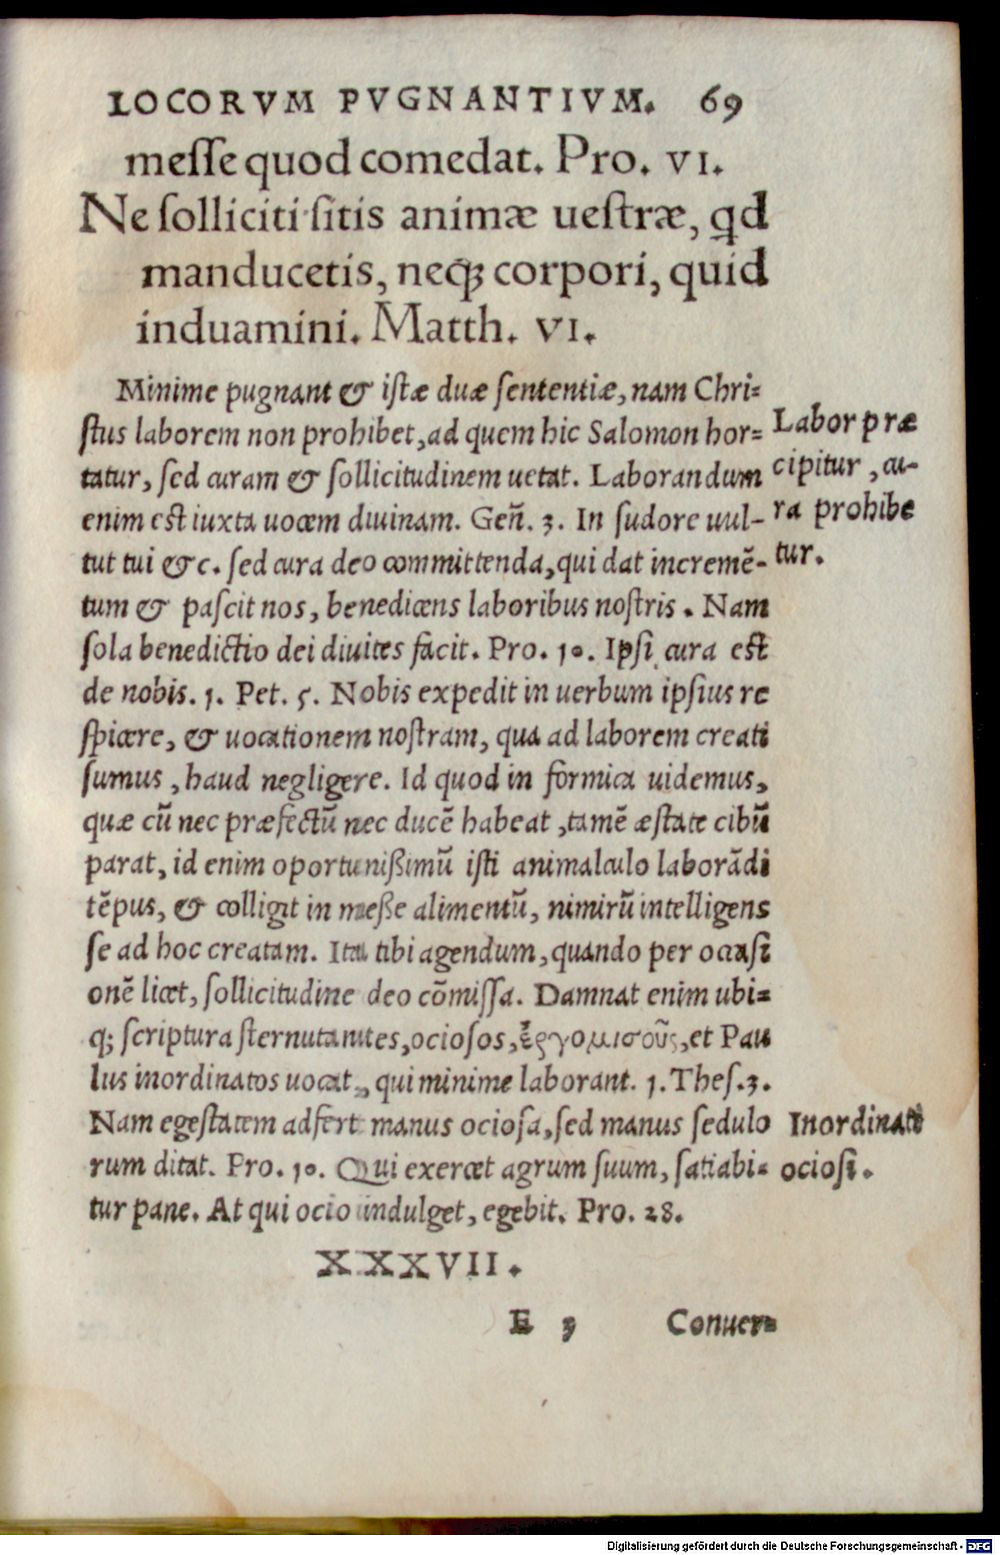 LOCORVM PVGNANTIVM. 69
messe quod comedat. Pro. VI.
Ne solliciti sitis animæ uestræ, qd
manducetis, neq; corpori, quid
induamini. Matth. VI.
Minime pugnant & istæ duæ sententiæ, nam Chri=
stus laborem non prohibet, ad quem hic Salomon hor=
tatur, sed curam & sollicitudinem uetat. Laborandum
enim est iuxta uocem diuinam. Geñ. 3. In sudore uul-
tut tui &c. sed cura deo committenda, qui dat incremē-
tum & pascit nos, benedicens laboribus nostris. Nam
sola benedictio dei diuites facit. Pro. 10. Ipsi cura est
de nobis. 1. Pet. 5. Nobis expedit in uerbum ipsius re
spicere, & uocationem nostram, qua ad laborem creati
sumus, haud negligere. Id quod in formica uidemus,
quæ cū nec præfectū nec ducē habeat, tamē æstate cibū
parat, id enim oportunißimū isti animalculo laborādi
tēpus, & colligit in meße alimentū, nimirū intelligens
se ad hoc creatam. Ita tibi agendum, quando per occasi
onē licet, sollicitudine deo cōmissa. Damnat enim ubi=
q; scriptura sternutantes, ociosos, ἐργομισοῦς, et Pau
lus inordinatos uocat, qui minime laborant. 1. Thes. 3.
Nam egestatem adfert manus ociosa, sed manus sedulo
rum ditat. Pro. 10. Qui exercet agrum suum, satiabi=
tur pane. At qui ocio indulget, egebit. Pro. 28.
Labor præ
cipitur, cu-
ra prohibe
tur.
Inordinati
ociosi.
XXXVII.
E 3 Conuer=
Digitalisierung gefördert durch die Deutsche Forschungsgemeinschaft - DFG